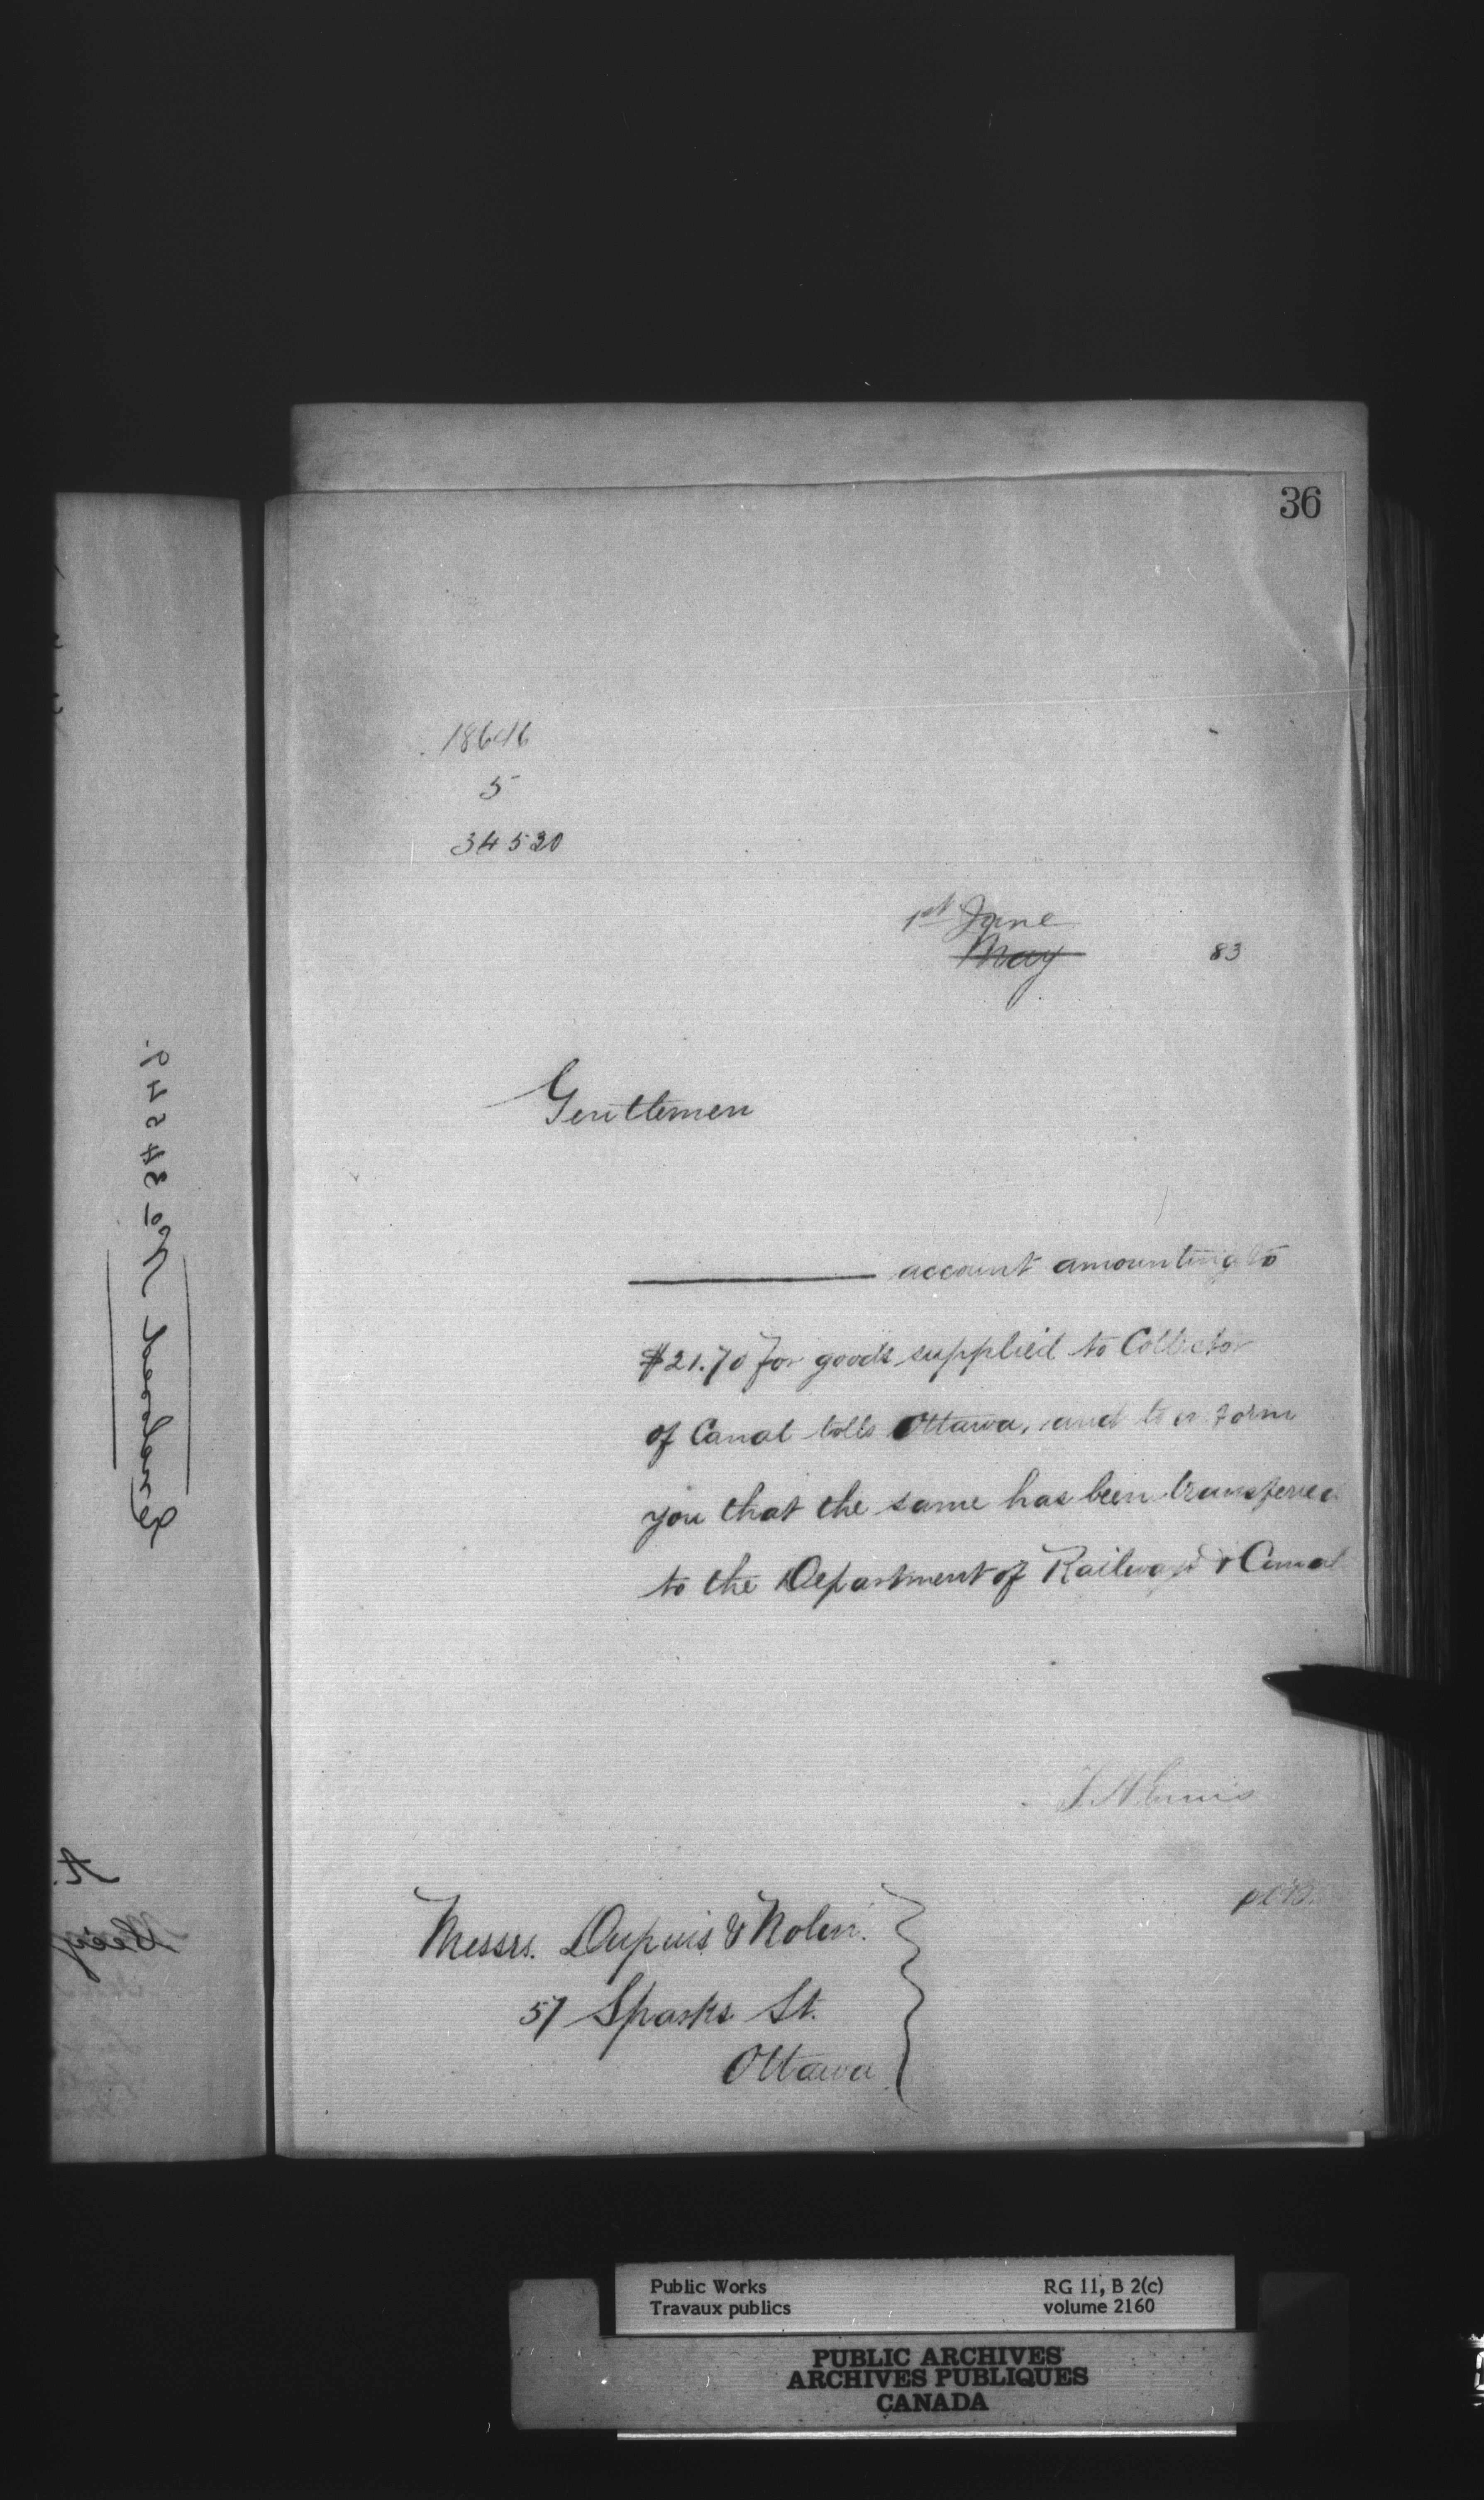 36
18646
5
34520
1st June
May
83
Gentlemen
account amounting to
$21.70 for goods supplied to Collector
of Canal tolls Ottawa, and to inform
you that the same has been transferred
to the Department of Railways & Canal
F. H. Ennis
Messrs. Dupuis & Nolin.
57 Sparks St.
Ottawa
Public Works
Travaux publics
RG 11, B 2(c)
volume 2160
PUBLIC ARCHIVES
ARCHIVES PUBLIQUES
CANADA